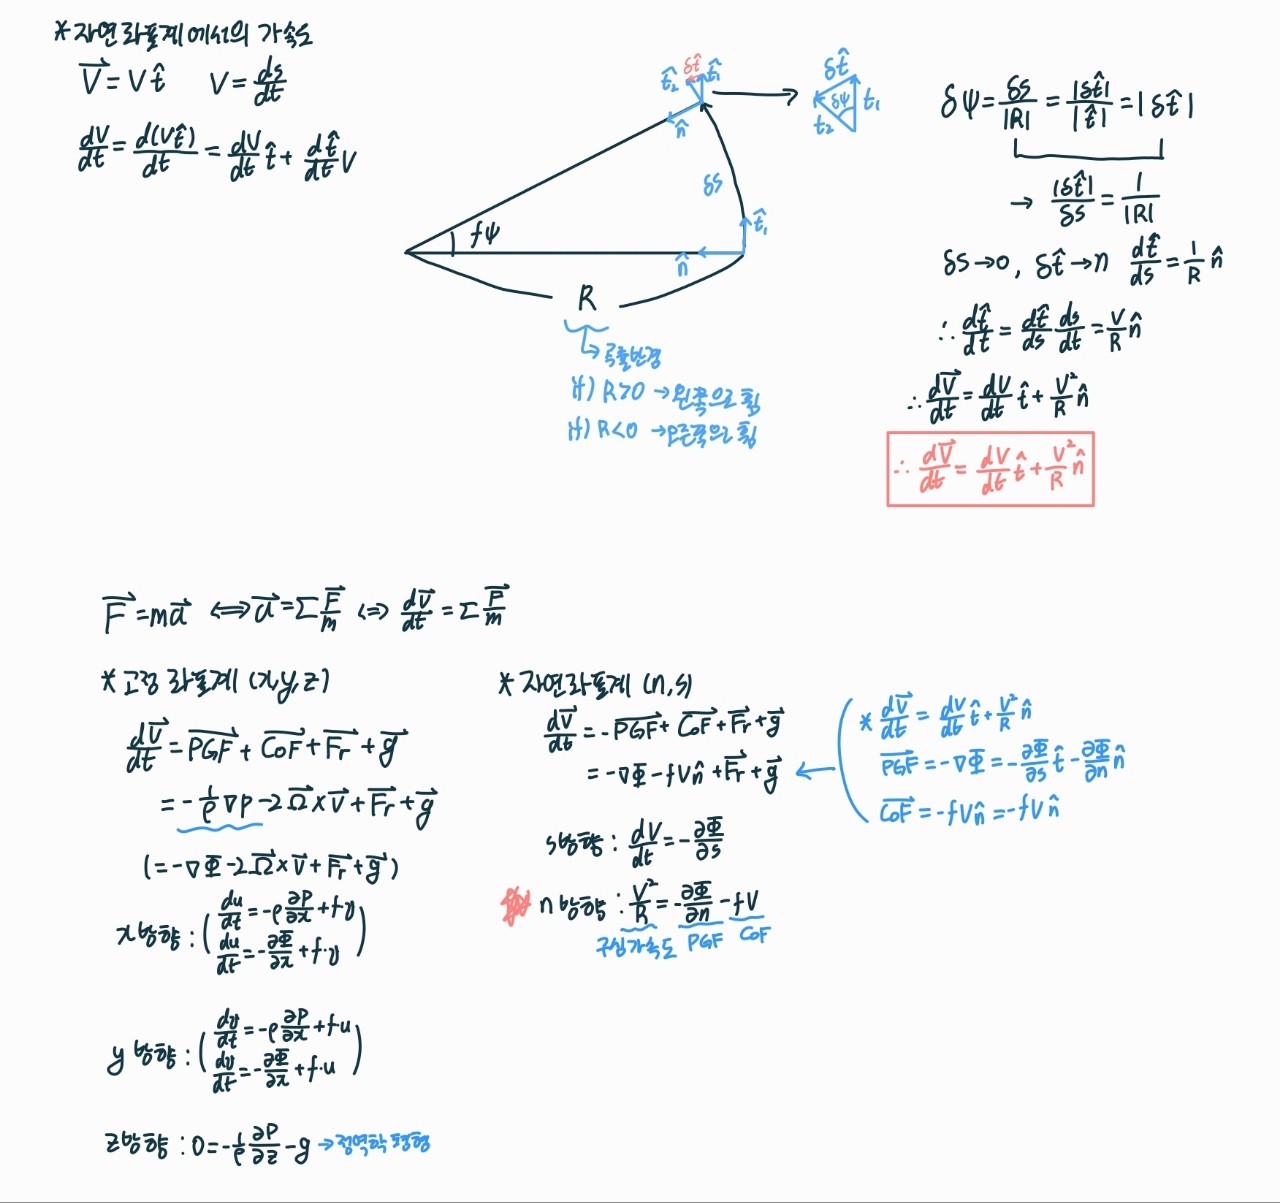 *자연좌표계에서의 가속도
V⃗ = V t̂   V = ds/dt
dV/dt = d(Vt̂)/dt = dV/dt t̂ + dt̂/dt V
t̂₂ δt̂ t̂₁
n̂
δs
fψ
t̂₁
n̂
R
→곡률반경
if) R>0 →왼쪽으로 휨
if) R<0 →오른쪽으로 휨
δt̂
δψ t₁
t₂
δψ = δs/|R| = |δt̂|/|t̂| = |δt̂|
→ |δt̂|/δs = 1/|R|
δs→0, δt̂→n dt̂/ds = 1/R n̂
∴ dt̂/dt = dt̂/ds ds/dt = V/R n̂
∴ dV⃗/dt = dV/dt t̂ + V²/R n̂
∴ dV⃗/dt = dV/dt t̂ + V²/R n̂
F⃗ = ma⃗ ⟺ a⃗ = Σ F⃗/m ⟺ dV⃗/dt = Σ F⃗/m
*고정 좌표계 (x,y,z)
dV⃗/dt = PGF⃗ + CoF⃗ + Fr⃗ + g⃗
= -1/ρ ∇p - 2Ω⃗×V⃗ + Fr⃗ + g⃗
(= -∇Φ - 2Ω⃗×V⃗ + Fr⃗ + g⃗)
x방향 : ( du/dt = -ρ ∂P/∂x + fv
du/dt = -∂Φ/∂x + f·v )
y방향 : ( dv/dt = -ρ ∂P/∂x + fu
dv/dt = -∂Φ/∂x + f·u )
z방향 : 0 = -1/ρ ∂P/∂z - g →정역학 평형
*자연좌표계 (n,s)
dV⃗/dt = -PGF⃗ + CoF⃗ + Fr⃗ + g⃗
= -∇Φ - fVn̂ + Fr⃗ + g⃗
s방향 : dV/dt = -∂Φ/∂s
n방향 : V²/R = -∂Φ/∂n - fV
구심가속도 PGF CoF
* dV⃗/dt = dV/dt t̂ + V²/R n̂
PGF⃗ = -∇Φ = -∂Φ/∂s t̂ - ∂Φ/∂n n̂
CoF⃗ = -fVn̂ = -fVn̂